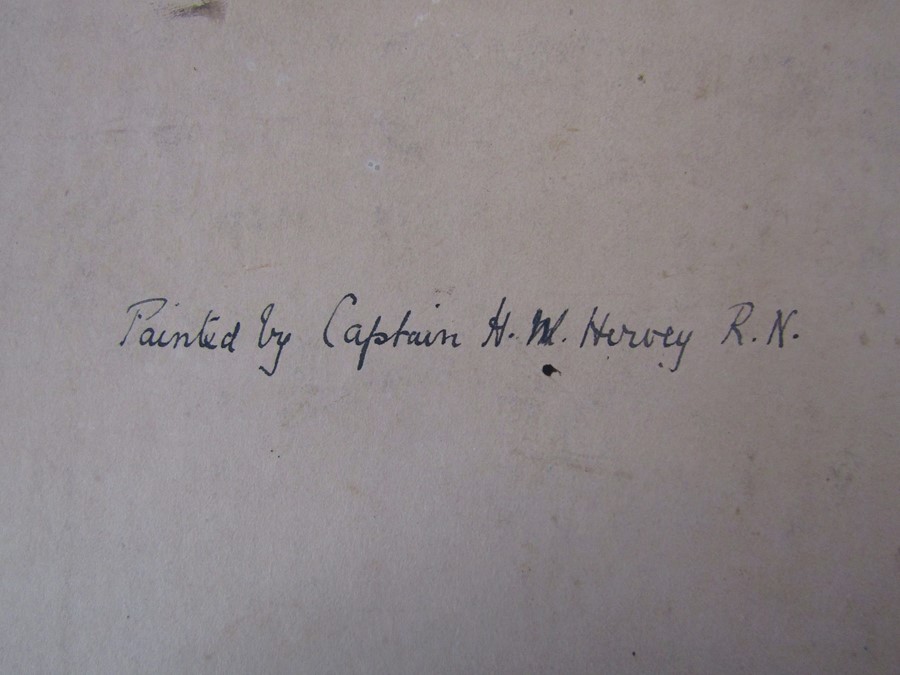 Painted by Captain H. M. Hervey R.N.